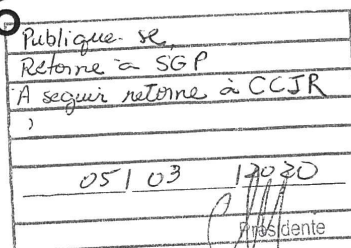 Publique-se,
Retorne a SGP
A seguir retorne à CCJR
)
05/ 03 /2020
Presidente